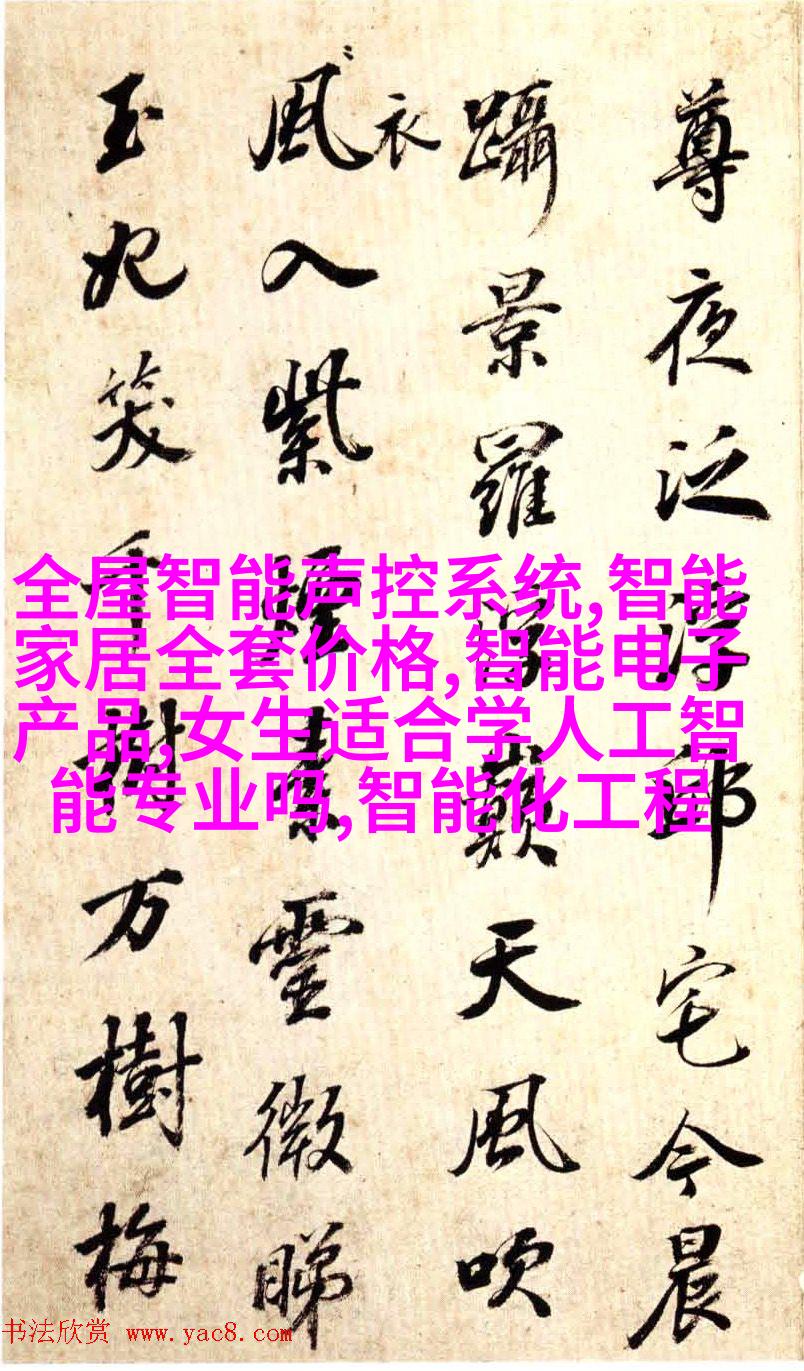 尊夜泛浮邱宅今晨
躡景羅浮巔天風吹
衣
風入紫煙素靈微睇
玉妃笑千樹万樹梅
全屋智能声控系统,智能
家居全套价格,智能电子
产品,女生适合学人工智
能专业吗,智能化工程
书法欣赏 www.yac8.com